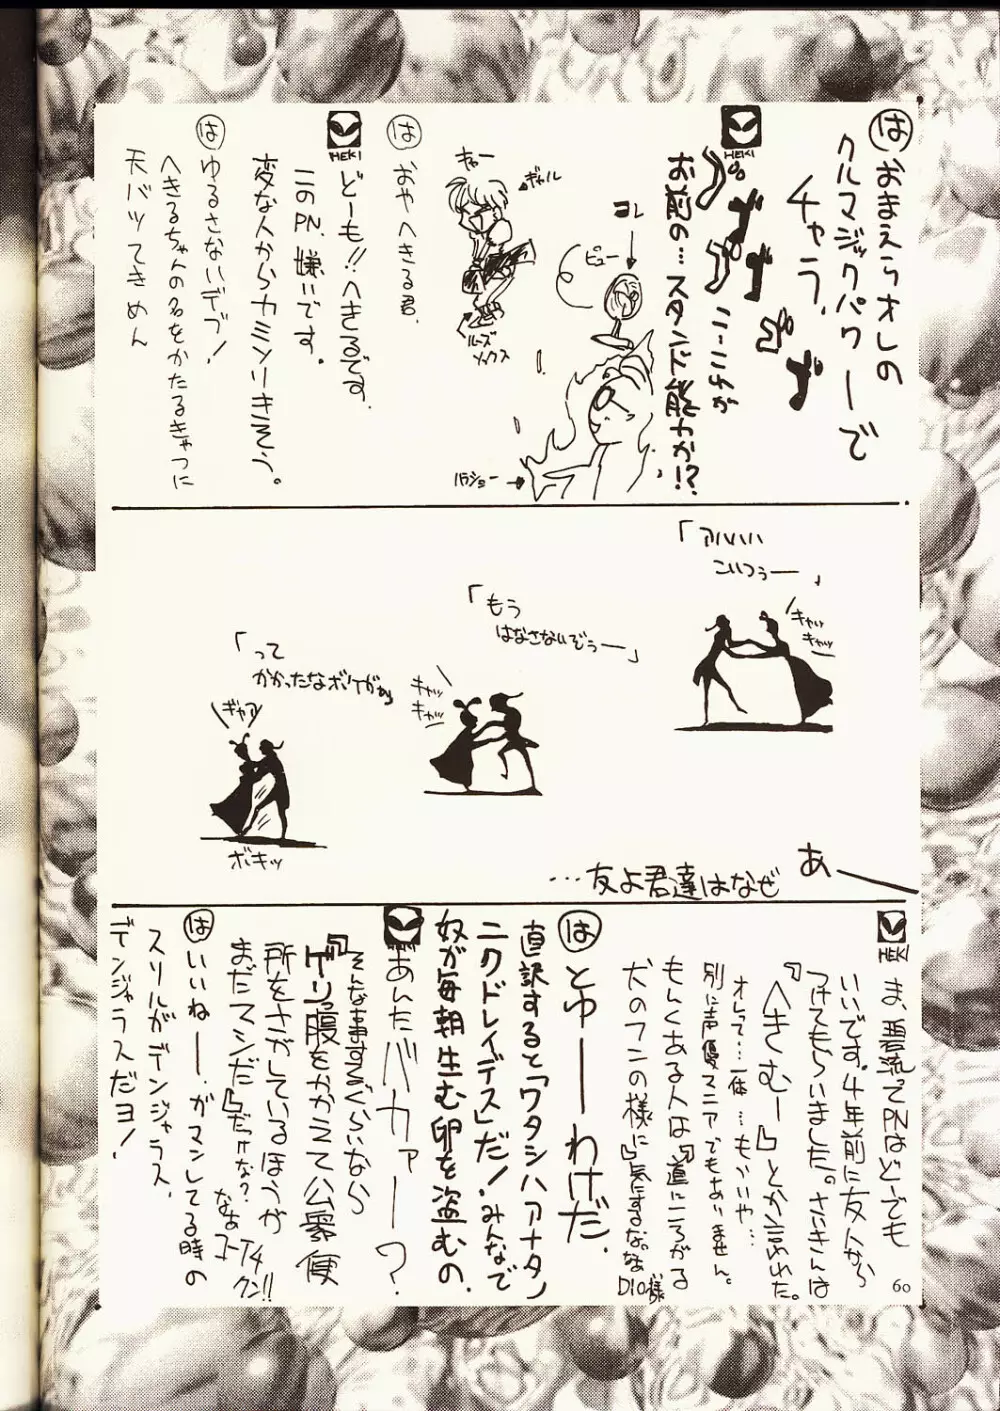 は おまえらオレの
クルマジックパワーで
チャラ、
HEKI
パパパ
ゴゴゴ
こ…これが
お前の…スタンド能力か!?
コレ
ビュー
ハラショー→
キュー
ギャル
ルーズ
ソックス
は おやへきる君、
HEKI
どーも!!へきるです、
このPN、嫌いです。
変な人からカミソリきそう。
は ゆるさないデブ!
へきるちゃんの名をかたるきゃつに
天バツてきめん
「アハハハ
こいつぅー」
キャッ
キャッ
「もう
はなさないぞぅー」
キャッ
キャッ
「って
かかったなボケがぁ
ギャア
ボキッ
あー
…友よ君達はなぜ
HEKI
ま、君流ってPNはどーでも
いいです。4年前に友人から
つけてもらいました。さいきんは
『へきむー』とか言われた。
オレって…一体…もういいや…
別に声優マニアでもありません。
もんくある人は『道にころがる
犬のフンの様に』気にするな。なぁ
DIO様
は とゆーーわけだ、
直訳すると「ワタシハアナタノ
ニクドレイデス」だ!みんなで
奴が毎朝生む卵を盗むの、
あんたバカァー?
そんな事するぐらいなら
『ゲリっ腹をかかえて公衆便
所をさがしているほうが
まだマシだ』だっけな?
なぁ
コーイチ
クン!!
は いいねー、ガマンしてる時の
スリルがデンジャラス、
デンジャラスだヨ!
60